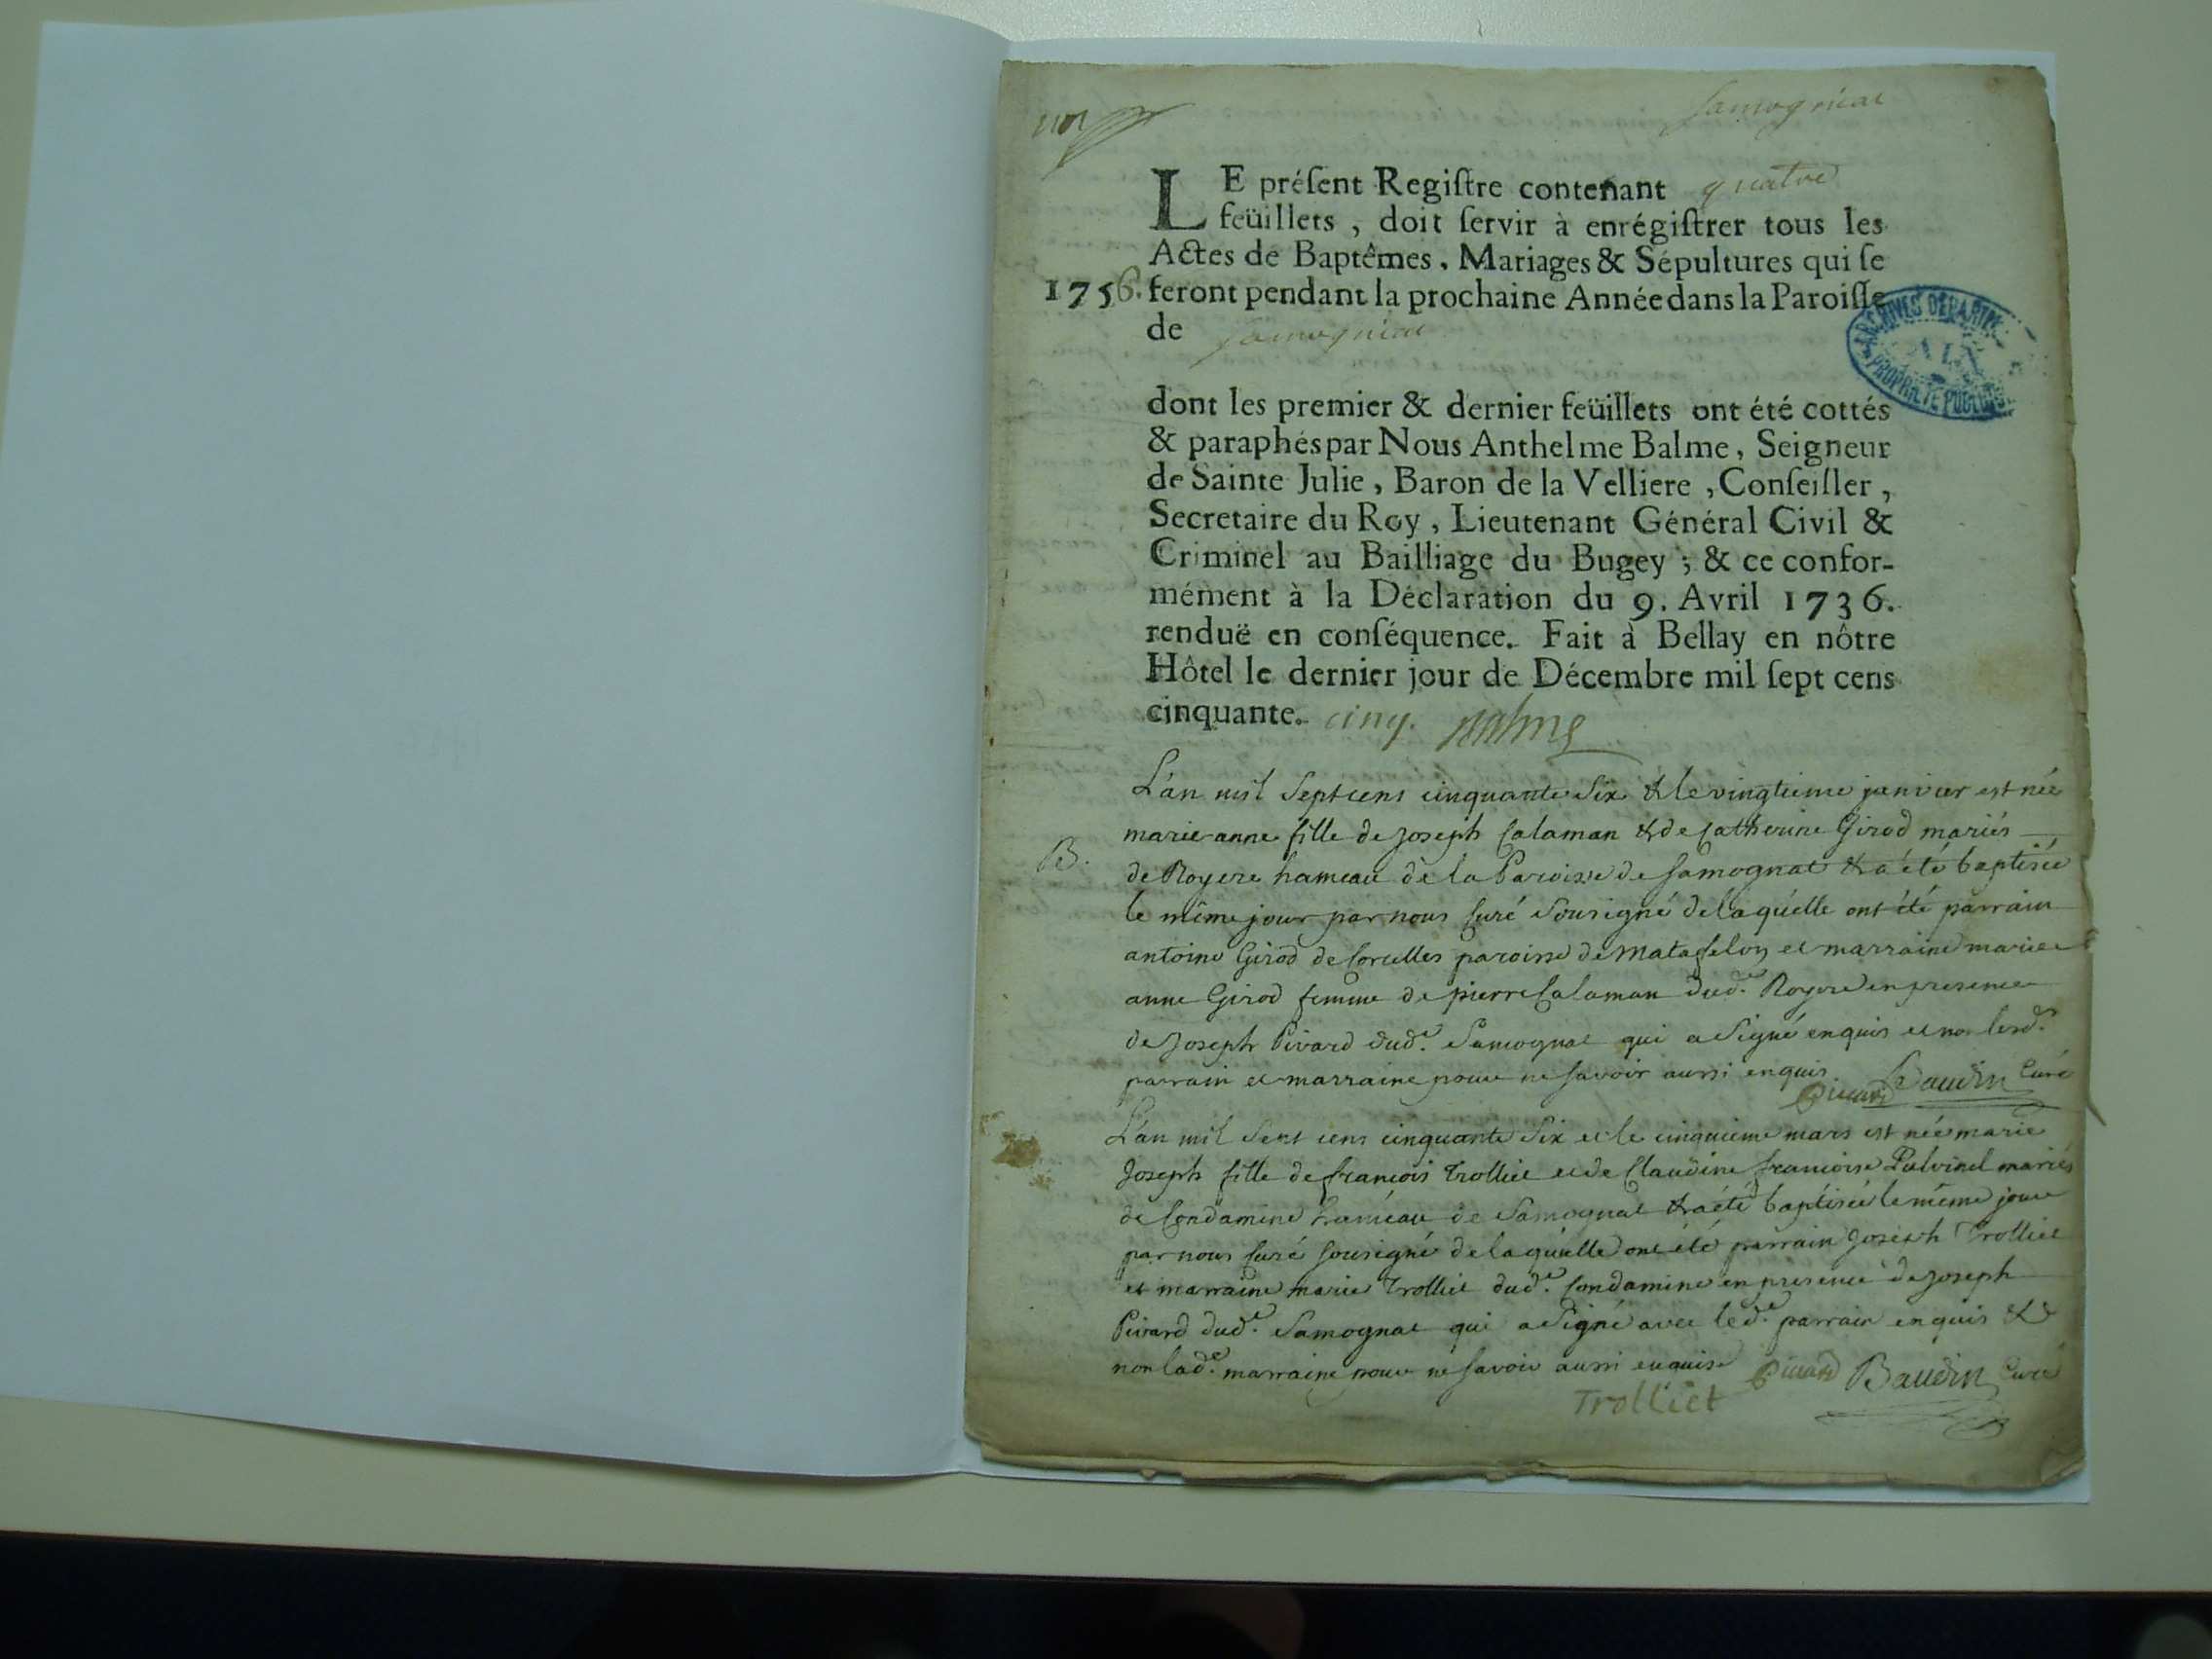 un
Samognat
LE préſent Regiſtre contenant quatre
feüillets, doit ſervir à enrégiſtrer tous les
Actes de Baptêmes, Mariages & Sépultures qui ſe
1756. feront pendant la prochaine Année dans la Paroiſſe
de Samognat
ARCHIVES DEPARTEM
AIN
PROPRIETE PUBLIQUE
dont les premier & dernier feüillets ont été cottés
& paraphés par Nous Anthelme Balme, Seigneur
de Sainte Julie, Baron de la Velliere, Conſeiller,
Secretaire du Roy, Lieutenant Général Civil &
Criminel au Bailliage du Bugey; & ce confor-
mément à la Déclaration du 9. Avril 1736.
renduë en conſéquence. Fait à Bellay en nôtre
Hôtel le dernier jour de Décembre mil ſept cens
cinquante. cinq. Balme
L'an mil Sept cens cinquante Six & le vingtieme janvier est née
marie anne fille de Joseph Calaman & de Catherine Girod mariés
B.
de Royere hameau de la Paroisse de Samognat & a été baptisée
le même jour par nous Curé Sousigné de laquelle ont été parrain
antoine Girod de Corcelles paroisse de Matafelon et marraine marie
anne Girod femme de pierre Calaman dud.e Royere en presence
de Joseph Pivard dud.e Samognat qui a Signé enquis et non lesd.s
parrain et marraine pour ne savoir aussi enquis.
Pivard Baudin Curé
L'an mil Sept cens cinquante Six et le cinquieme mars est née marie
Joseph fille de françois Trolliet et de Claudine françoise Pulvinel mariés
de Condamine hameau de Samognat & a été baptisée le même jour
par nous Curé sousigné de laquelle ont été parrain Joseph Trolliet
et marraine marie Trolliet dud.e Condamine en presence de Joseph
Pivard dud.e Samognat qui a Signé avec led.e parrain enquis &
non lad.e marraine pour ne savoir aussi enquise Pivard Baudin Curé
Trolliet